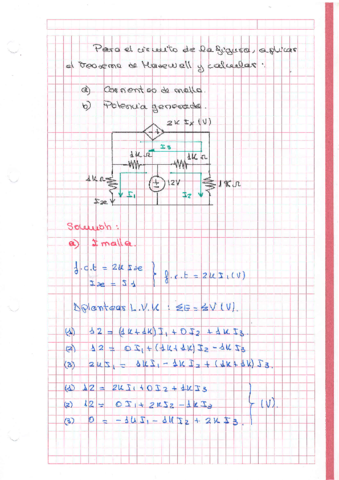 Para el circuito de la figura, aplicar
el Teorema de Maxwell y calcular:
a) Corrientes de malla
b) Potencia generada.
2K Ix (V)
- +
I3
1KΩ
1KΩ
1KΩ
12V
1KΩ
Ix
I1
I2
a) I malla.
f.c.t = 2K Ix
Ix = I1
f.c.t = 2K I1 (V)
L.V.K : ΣG = ΣV (V).
(1) 12 = (1k+1k) I1 + 0 I2 + 1k I3
(2) 12 = 0 I1 + (1k+1k) I2 - 1k I3
(3) 2K I1 = 1k I1 - 1k I2 + (1k+1k) I3.
(1) 12 = 2K I1 + 0 I2 + 1k I3
(2) 12 = 0 I1 + 2K I2 - 1k I3
(V).
(3) 0 = -1k I1 - 1k I2 + 2K I3.